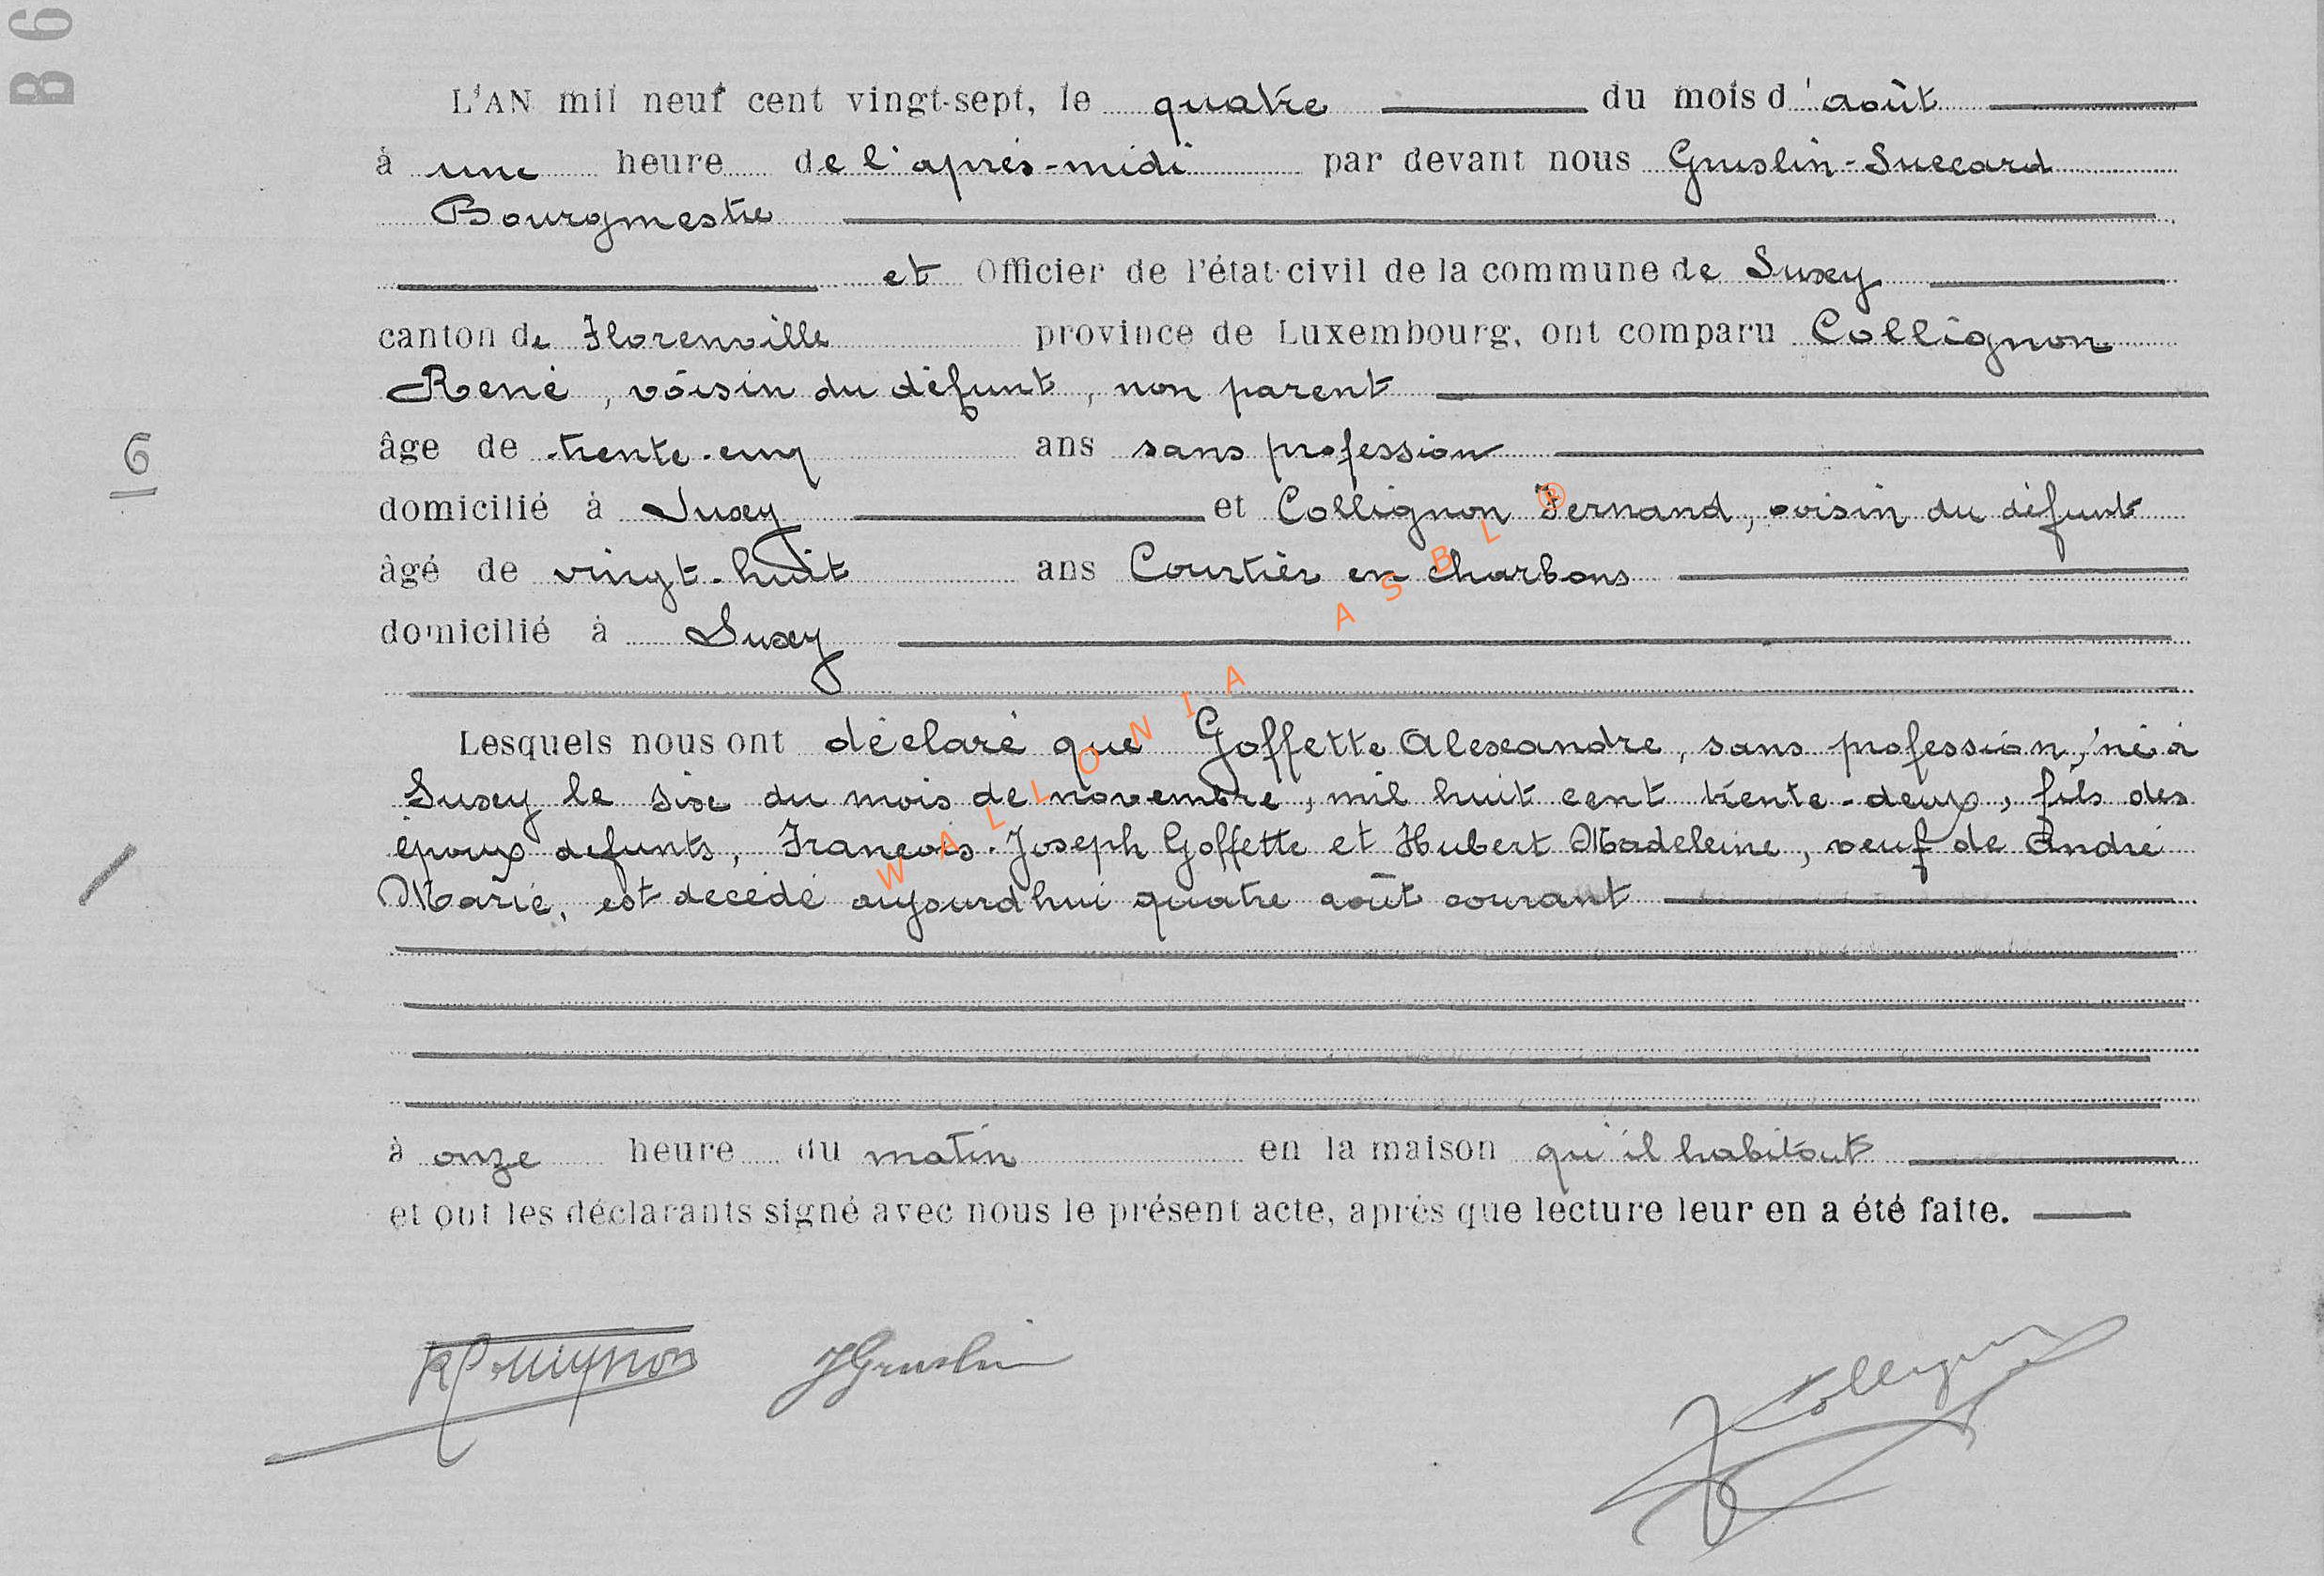 B 6
L'AN mil neuf cent vingt-sept, le quatre du mois d'août
à une heure de l'après-midi par devant nous Gruslin-Succard
Bourgmestre
et Officier de l'état-civil de la commune de Suxy
canton de Florenville province de Luxembourg, ont comparu Collignon
René, voisin du défunt, non parent
âge de trente-cinq ans sans profession
6
domicilié à Suxy et Collignon Fernand, voisin du défunt
âgé de vingt-huit ans Courtier en charbons
domicilié à Suxy
Lesquels nous ont déclaré que Goffette Alexandre, sans profession, né à
Suxy le six du mois de novembre, mil huit cent trente-deux, fils des
époux défunts, François-Joseph Goffette et Hubert Madeleine, veuf de André
Marie, est décédé aujourd'hui quatre août courant
à onze heure du matin en la maison qu'il habitait
et ont les déclarants signé avec nous le présent acte, après que lecture leur en a été faite.
RCollignon JGruslin FCollignon
WALLONIA ASBL ®